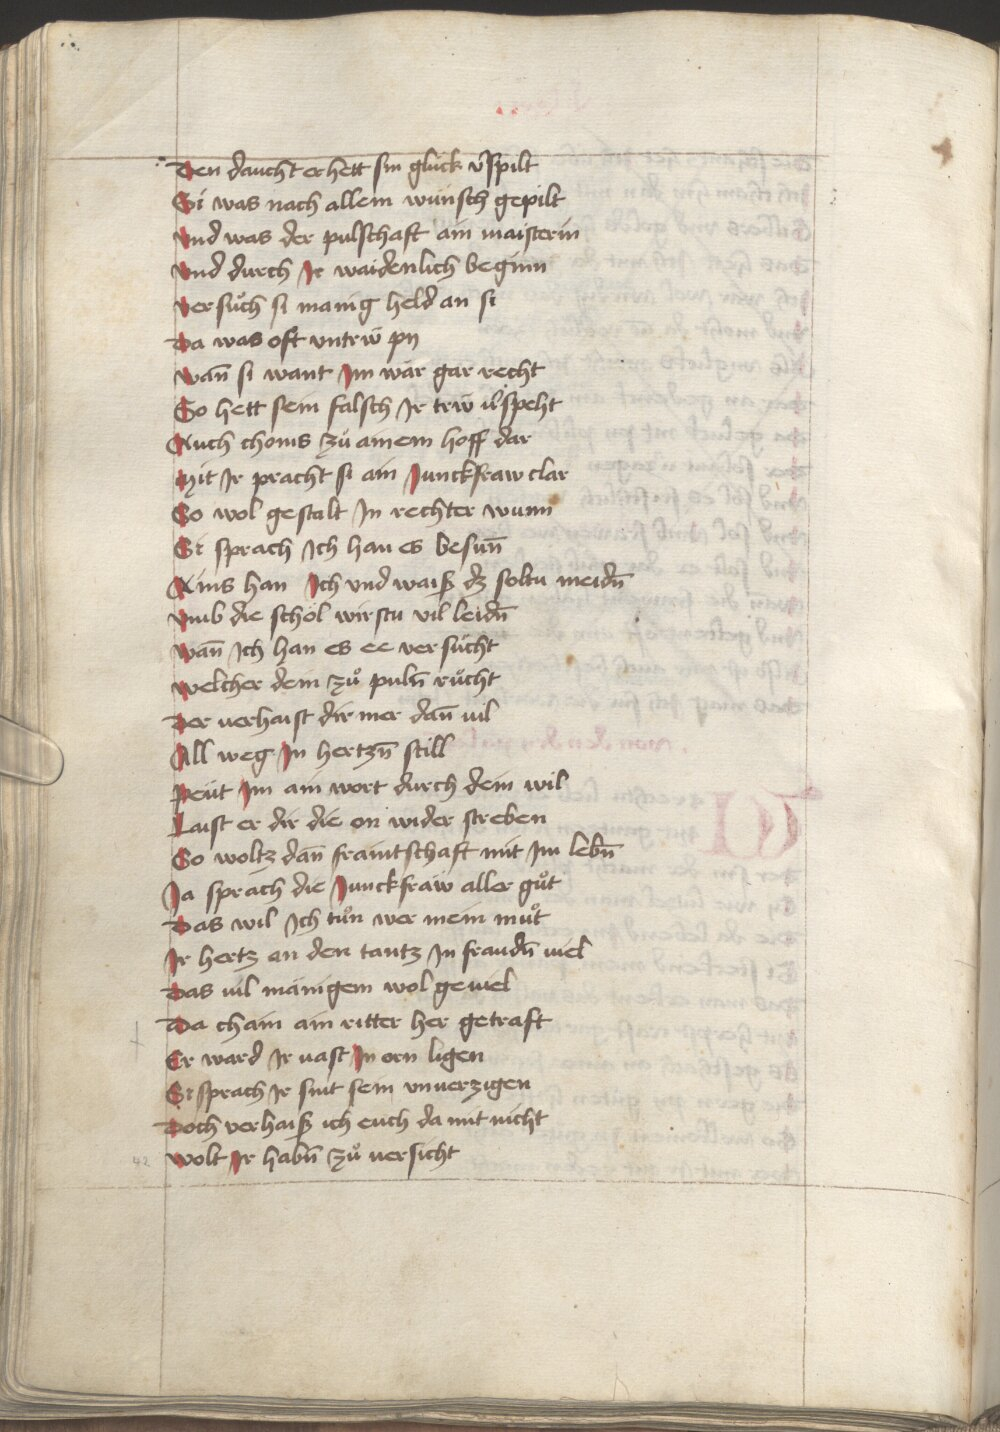 Den daucht er hett sin glück v̓spilt
Si was nach allem wünsch gepilt
Vnd was der pulschaft ain maisterin
Vnd durch Ir waidenlich beginn
Versůch si manig held an si
Da was oft vntrẅ py
Wañ si want Im wär gar recht
So hett sein falsch Ir trẅ v̓speht
Auch choms zů ainem hoff dar
Mit Ir pracht si ain Junckfraw clar
So wol gestalt In rechter wunn
Si sprach Ich han es besuñ
Ains han Ich vnd waiß dz soltu meidñ
Vmb die schol wirstu vil leidñ
Wañ Ich han es ee versůcht
Welcher dein zů pulñ růcht
Der verhaist dir mer dañ vil
All weg In hertzñ still
Peüt Im ain wort durch dein wil
Laist er dir die on wider streben
So woltz dañ fraintschaft mit Im lebñ
Ja sprach die Junckfraw aller gůt
Das wil Ich tůn wer mein můt
Ir hertz an den tantz In fraudñ viel
Das vil mänigem wol geuiel
Da cham ain ritter her getraft
Er ward Ir vast In orn ligen
Si sprach Ir sint sein vnuerzigen
Doch verhaiß ich euch da mit nicht
Wolt Ir habñ zů versicht
42